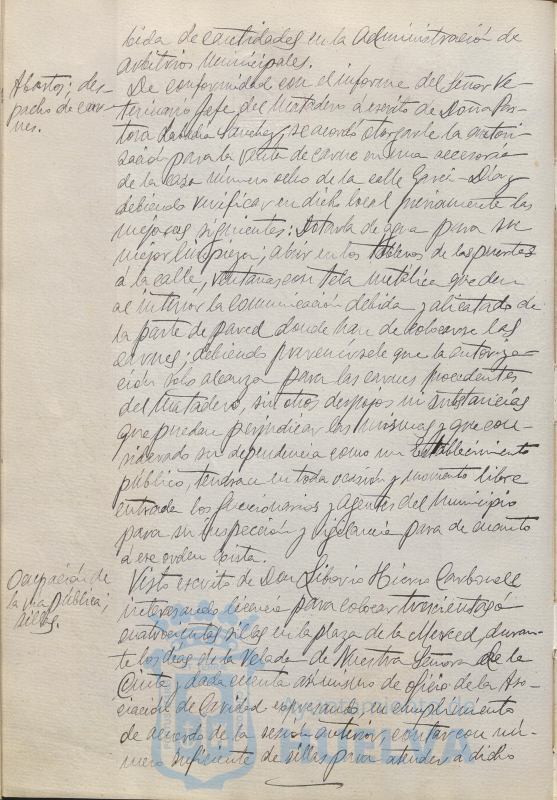 bida de cantidades en la Administración de
arbitrios municipales.
Abastos; des-
pacho de car-
nes.
De conformidad con el informe del Señor Ve-
terinario Jefe del Matadero a escrito de Doña Pas-
tora Sánchez, se acordó otorgarle la autori-
zación para la venta de carne en una accesoria
de la casa número ocho de la calle Garci-Díaz
debiendo verificar en dicho local previamente las
mejoras siguientes: Dotarla de agua para su
mejor limpieza; abrir en los tableros de las puertas
á la calle, ventanas con tela metálica que den
al interior la comunicación debida y alicatado de
la parte de pared donde han de colocarse las
carnes; debiendo prevenírsele que la autoriza-
ción solo alcanza para las carnes procedentes
del Matadero, sin otros despojos ni substancias
que puedan perjudicar las mismas y que con-
siderado su dependencia como un Establecimiento
público, tendran en toda ocasión y momento libre
entrada los funcionarios y agentes del Municipio
para su inspección y vigilancia para de cuanto
a ese orden
Ocupación de
la vía pública;
sillas.
Visto escrito de Don Liborio Hierro Carbonell
interesando licencia para colocar trescientas ó
cuatrocientas sillas en la plaza de la Merced, duran-
te los días de la Velada de Nuestra Señora de la
Cinta y dada cuenta asimismo de oficio de la Aso-
ciación de Caridad expresando, en cumplimiento
de acuerdo de la sesión anterior, contar con nú-
mero suficiente de sillas para atender á dicho
HUELVA